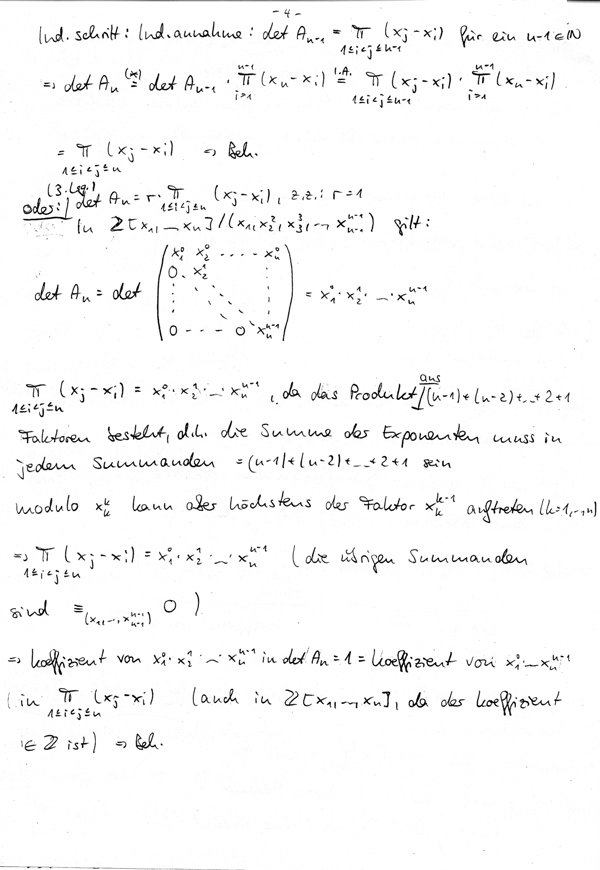 - 4 -
Ind.schritt: Ind.annahme: det Aₙ₋₁ = π (xⱼ-xᵢ) für ein n-1 ∈ ℕ
1≤i<j≤n-1
=> det Aₙ (*)= det Aₙ₋₁ · π (xₙ-xᵢ) I.A.= π (xⱼ-xᵢ) · π (xₙ-xᵢ)
n-1 i=1 1≤i<j≤n-1 n-1 i=1
= π (xⱼ-xᵢ) => Beh.
1≤i<j≤n
oder: det Aₙ = r · π (xⱼ-xᵢ), z.z.: r=1
1≤i<j≤n
In ℤ[x₁,...,xₙ]/(x₁,x₂²,x₃³,...,xₙ₋₁ⁿ⁻¹) gilt:
x₁⁰ x₂⁰ ---- xₙ⁰
0 x₂¹
det Aₙ = det = x₁⁰·x₂¹· ... ·xₙⁿ⁻¹
0 --- 0 xₙⁿ⁻¹
π (xⱼ-xᵢ) = x₁⁰·x₂¹· ... ·xₙⁿ⁻¹, da das Produkt aus (n-1)+(n-2)+...+2+1
1≤i<j≤n
Faktoren besteht, d.h. die Summe der Exponenten muss in
jedem Summanden = (n-1)+(n-2)+...+2+1 sein
modulo xₖᵏ kann aber höchstens der Faktor xₖᵏ⁻¹ auftreten (k=1,...,n)
=> π (xⱼ-xᵢ) = x₁⁰·x₂¹· ... ·xₙⁿ⁻¹ (die übrigen Summanden
1≤i<j≤n
sind ≡ 0 )
(x₁,...,xₙ₋₁ⁿ⁻¹)
=> Koeffizient von x₁⁰·x₂¹· ... ·xₙⁿ⁻¹ in det Aₙ = 1 = Koeffizient von x₁⁰...xₙⁿ⁻¹
in π (xⱼ-xᵢ) (auch in ℤ[x₁,...,xₙ], da der Koeffizient
1≤i<j≤n
∈ ℤ ist) => Beh.